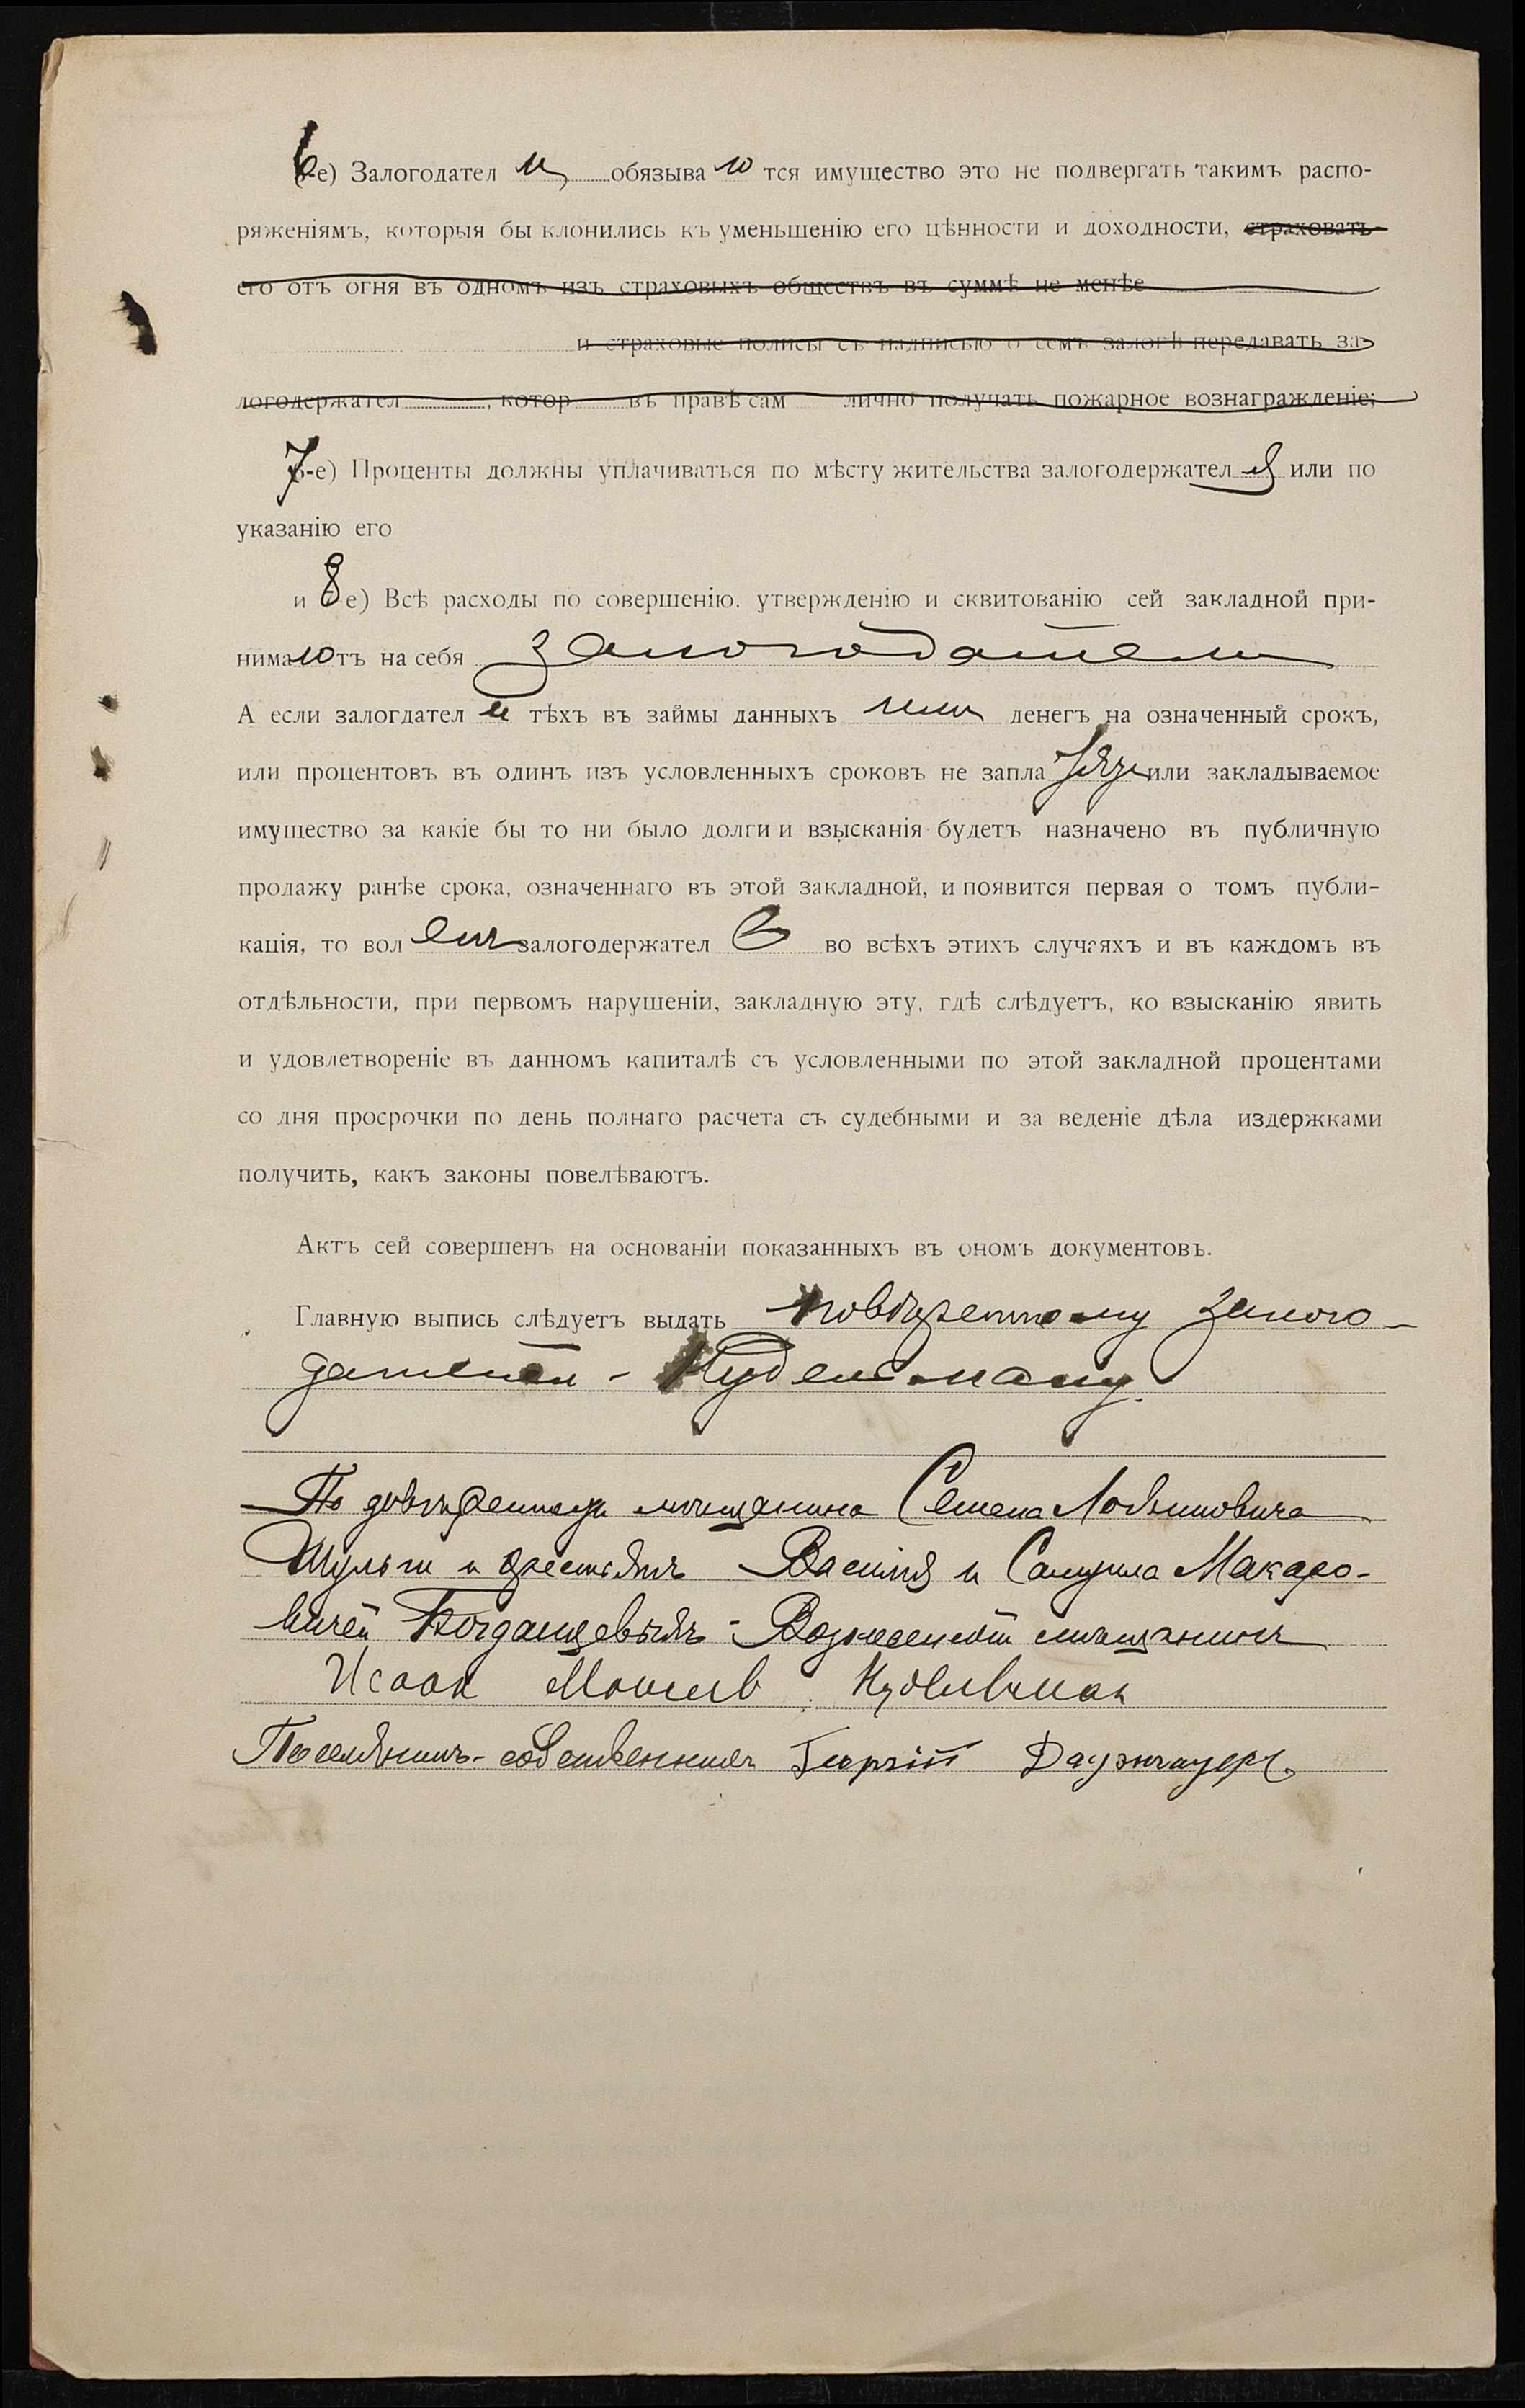 6-е) Залогодатели обязываются имущество это не подвергать такимъ распо-
ряженіямъ, которыя бы клонились къ уменьшенію его цѣнности и доходности, страховать
его отъ огня въ одномъ изъ страховыхъ обществъ въ суммѣ не менѣе
и страховые полисы съ надписью о семъ залогѣ передавать за-
логодержател , котор въ правѣ сам лично получать пожарное вознагражденіе;
7-е) Проценты должны уплачиваться по мѣсту жительства залогодержателя или по
указанію его
и 8 е) Всѣ расходы по совершенію, утвержденію и сквитованію сей закладной при-
нимаютъ на себя залогодатели
А если залогдатели тѣхъ въ займы данныхъ имъ денегъ на означенный срокъ,
или процентовъ въ одинъ изъ условленныхъ сроковъ не запла или закладываемое
имущество за какіе бы то ни было долги и взысканія будетъ назначено въ публичную
продажу ранѣе срока, означеннаго въ этой закладной, и появится первая о томъ публи-
кація, то воленъ залогодержатель во всѣхъ этихъ случаяхъ и въ каждомъ въ
отдѣльности, при первомъ нарушеніи, закладную эту, гдѣ слѣдуетъ, ко взысканію явить
и удовлетвореніе въ данномъ капиталѣ съ условленными по этой закладной процентами
со дня просрочки по день полнаго расчета съ судебными и за веденіе дѣла издержками
получить, какъ законы повелѣваютъ.
Актъ сей совершенъ на основаніи показанныхъ въ ономъ документовъ.
Главную выпись слѣдуетъ выдать повѣренному залого-
дателей - Кудельману.
По довѣренности мѣщанина Семена Логвиновича
Шульги и крестьянъ Василія и Самуила Макаро-
вичей Богданцевыхъ - Вознесенскій мѣщанинъ
Исаак Мошков Кудельман
Поселянинъ-собственникъ Георгій